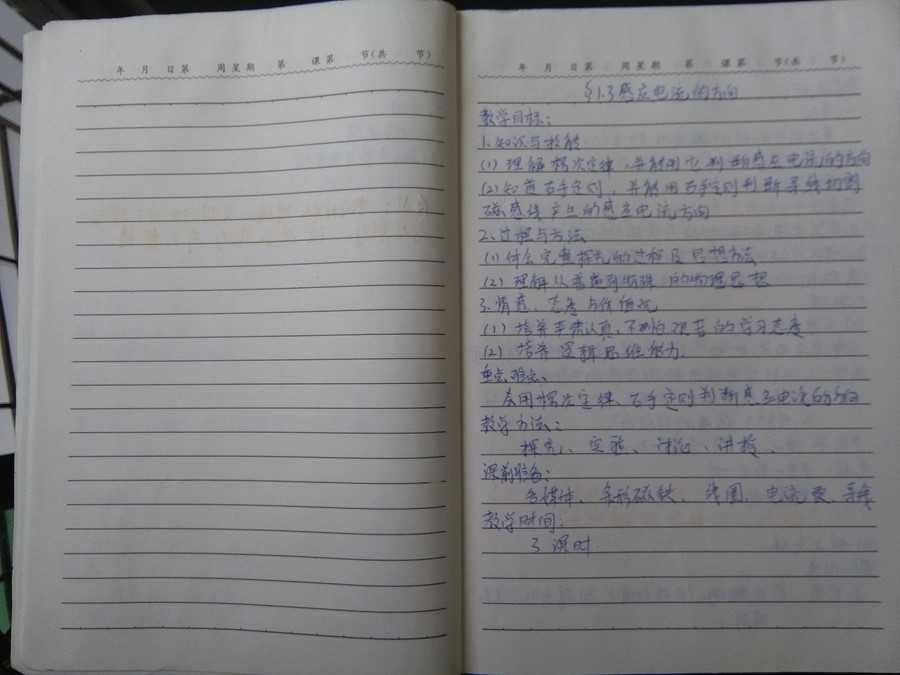 年 月 日第 周星期 第 课第 节(共 节)
年 月 日第 周星期 第 课第 节(共 节)
§1.3感应电流的方向
教学目标:
1.知识与技能
(1) 理解楞次定律,并能用它判断感应电流的方向
(2)知道右手定则,并能用右手定则判断导线切割
磁感线产生的感应电流方向
2.过程与方法
(1)体会完整探究的过程及思想方法
(2)理解从普遍到特殊的物理思想
3.情感、态度与价值观
(1)培养手脑认真,不怕艰苦的学习态度
(2)培养逻辑思维能力.
重点难点、
应用楞次定律、右手定则判断感应电流的方向
教学方法:
探究、实验、讨论、讲授、
课前准备:
多媒体、条形磁铁、线圈、电流表、导线
教学时间:
3课时